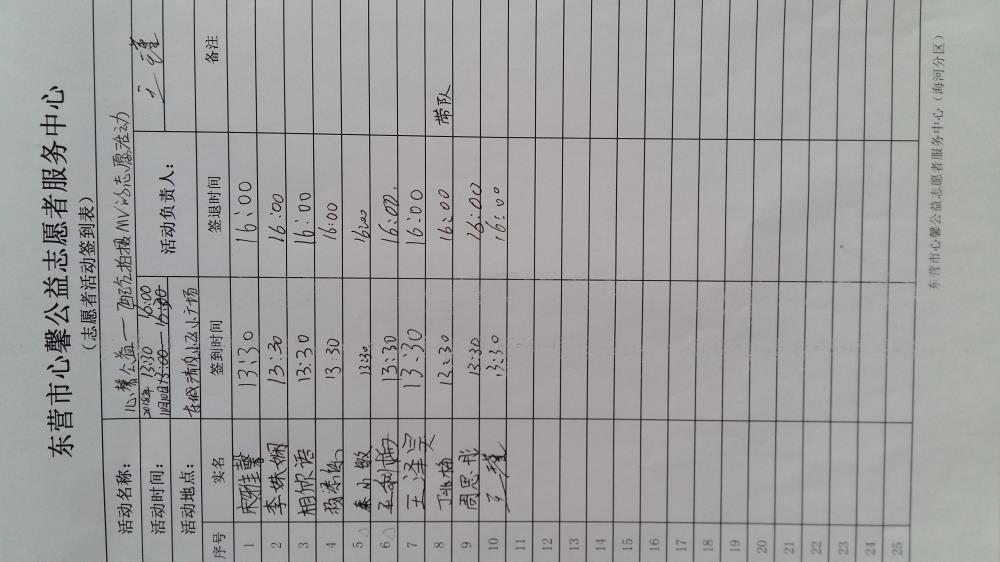 东营市心馨公益志愿者服务中心
（志愿者活动签到表）
活动名称： 心馨公益一配合拍摄MV的志愿活动
活动时间： 2018年11月10日 13:30 16:00 活动负责人： 王瑾
活动地点： 东城清风小区小广场
序号 实名 签到时间 签退时间 备注
1 宋雅馨 13:30 16:00
2 李姝娴 13:30 16:00
3 相欣语 13:30 16:00
4 13:30 16:00
5 △ 秦小敏 13:30 16:00
6 △ 13:30 16:00.
7 王泽昊 13:30 16:00
8 13:30 16:00 带队
9 周思彤 13:30 16:00
10 王瑾 13:30 16:00
11
12
13
14
15
16
17
18
19
20
21
22
23
24
25
东营市心馨公益志愿者服务中心（海河分区）